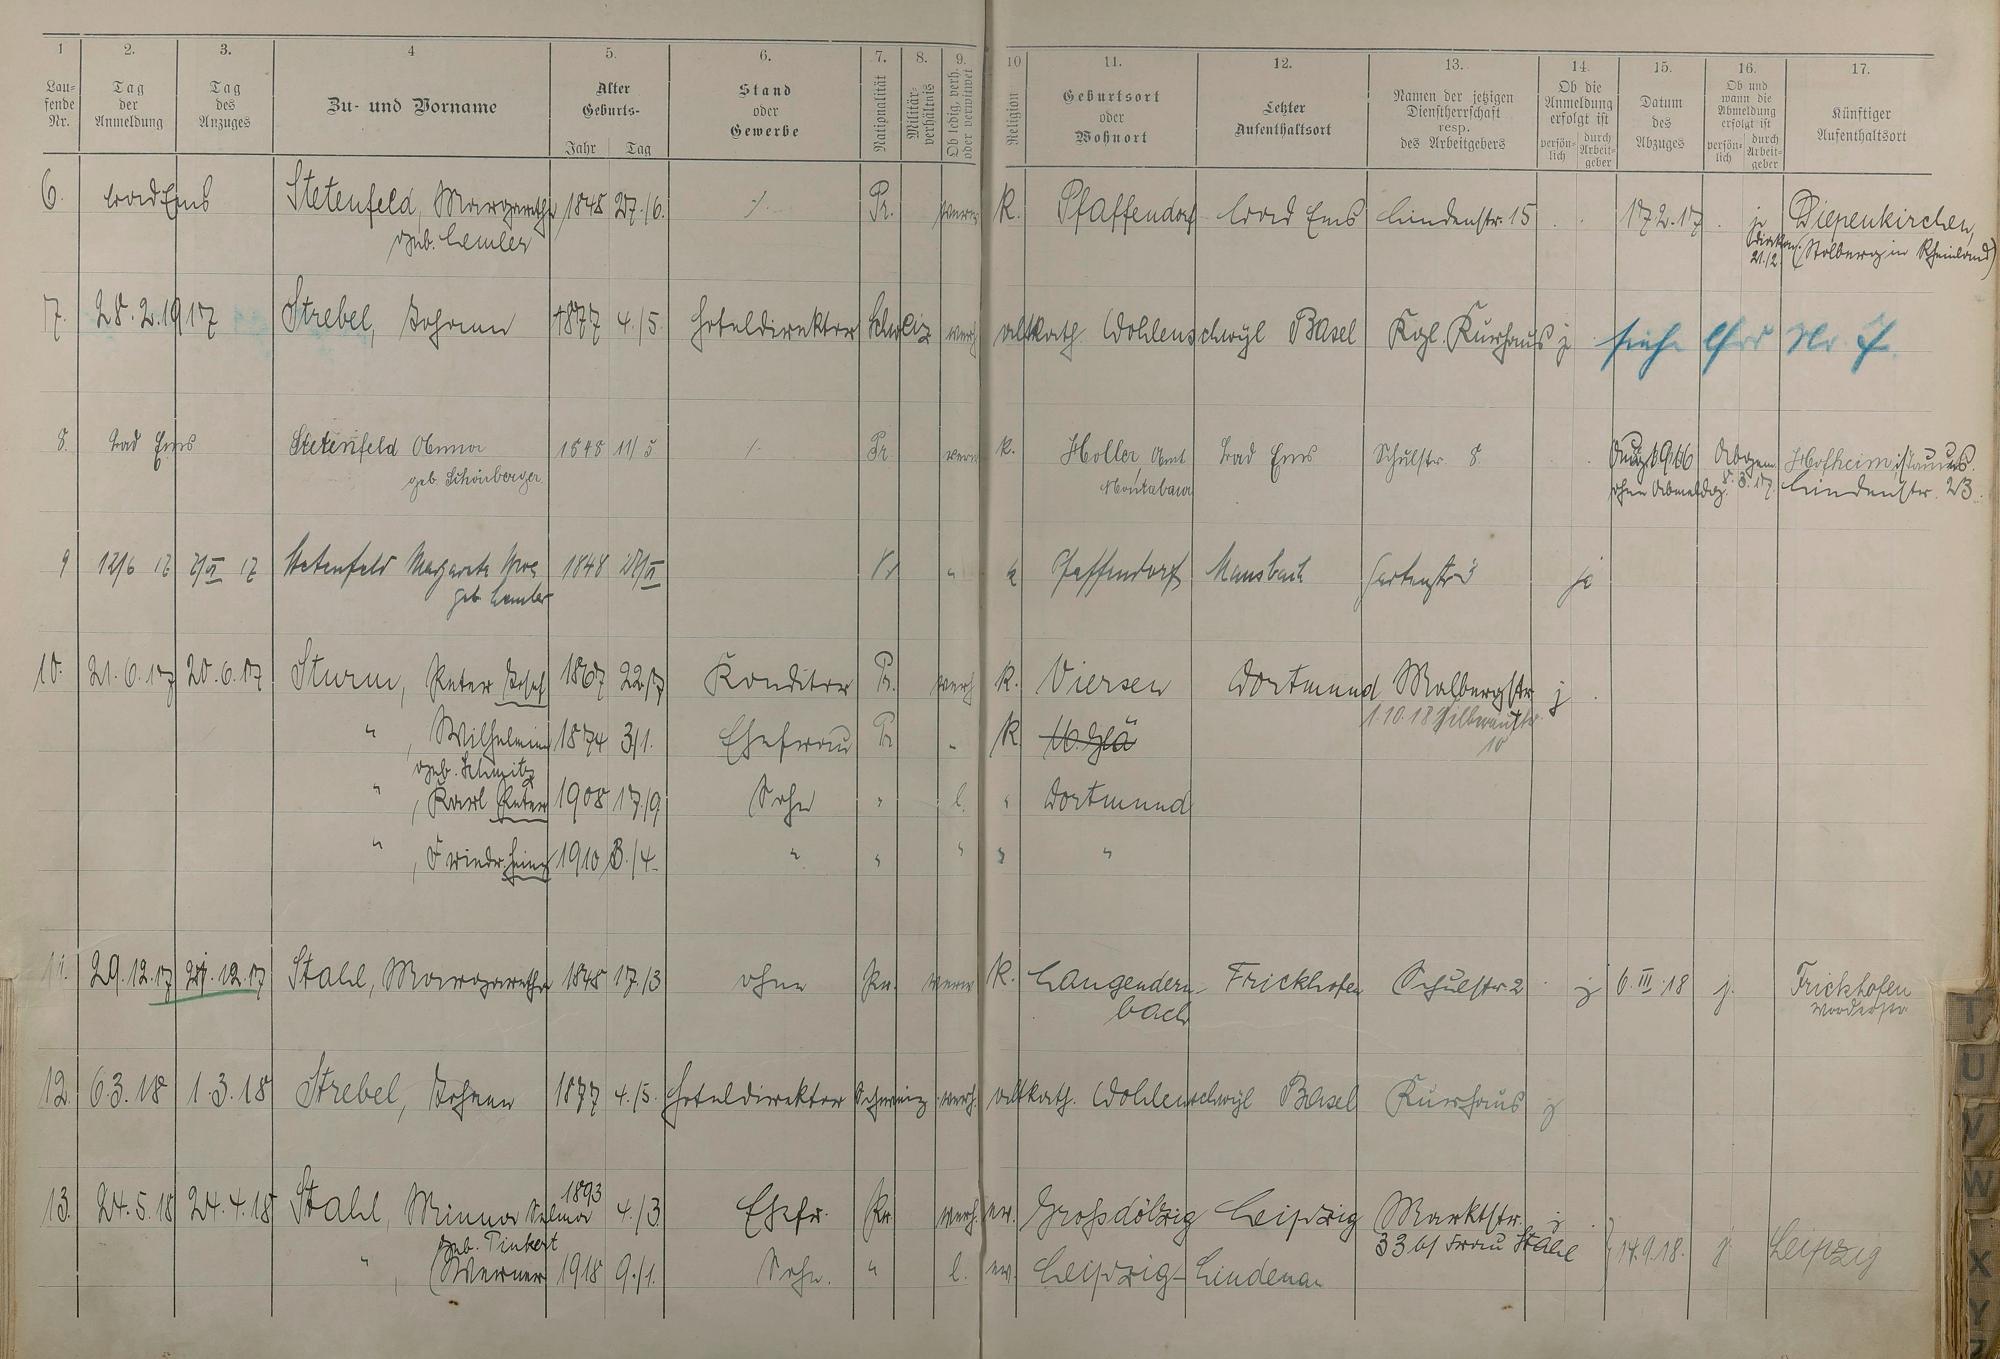 1 2. 3. 4 5. 6. 7. 8. 9. 10 11. 12. 13. 14. 15. 16. 17.
Lau-
fende
Nr.
Tag
der
Anmeldung
Tag
des
Anzuges
Zu- und Vorname
Alter
Geburts-
Jahr Tag
Stand
oder
Gewerbe
Nationalität
Militär-
verhältnis
Ob ledig, verh.
oder verwitwet
Religion
Geburtsort
oder
Wohnort
Letzter
Aufenthaltsort
Namen der jetzigen
Dienstherrschaft
resp.
des Arbeitgebers
Ob die
Anmeldung
erfolgt ist
persön-
lich
durch
Arbeit-
geber
Datum
des
Abzuges
Ob und
wann die
Abmeldung
erfolgt ist
persön-
lich
durch
Arbeit-
geber
Künftiger
Aufenthaltsort
6. Bad Ems Stetenfeld, Margarethe 1848 27./6. ./. Pr. verw. K. Pfaffendorf Bad Ems Lindenstr. 15 17.2.17 Diepenkirchen,
geb. Lemler 21./2. (Stolberg in Rheinland)
7. 28.2.1917 Strebel, Johann 1877 4./5. Hoteldirektor Schweiz verh. altkath. Wohlenschwyl Basel Kgl. Kurhaus j siehe lfd Nr.
8. Bad Ems Stetenfeld Anna 1848 11/5 /. Pr. verw. K. Holler, Amt Bad Ems Schulstr. 8 Aug. 1916 Abgem. Hofheim i/Taunus.
geb. Schönberger Montabaur ohne Abmeldg. 8.3.17. Lindenstr. 23.
9 12/6 17 Stetenfeld Margarete Wwe 1848 27/VI Pr " k Pfaffendorf Mansbach Gartenstr 3 ja
geb. Lemler
10. 21.6.17 20.6.17 Sturm, Peter Josef 1867 22/7 Konditor Pr. verh. K. Viersen Dortmund Malbergstr. j
1.10.18
" , Wilhelmine 1874 3/1. Ehefrau Pr " K M.Gla
geb. Schmitz
" , Karl Peter 1908 17./9 Sohn " l. " Dortmund
" , Friedr. Heinz 1910 3./4. " " " " "
11. 29.12.17 27.12.17 Stahl, Margarethe 1848 17./3 ohne Pr. verw. K. Langendern- Frickhofen Schulstr. 2 j 6.III.18 j. Frickhofen
bach
12. 6.3.18 1.3.18 Strebel, Johann 1877 4./5. Hoteldirektor Schweiz verh. altkath. Wohlenschwyl Basel Kurhaus j
13. 24.5.18 24.4.18 Stahl, Minna Selma 1893 4./3 Ehefr. Pr. verh. ev. Grossdölzig Leipzig Marktstr. j
geb. Tinkert 33 b/ Frau Stahl 14.9.18. j Leipzig
" , Werner 1918 9./1. Sohn. " l. ev. Leipzig-Lindenau
T
U
V
W
X
Y
Z